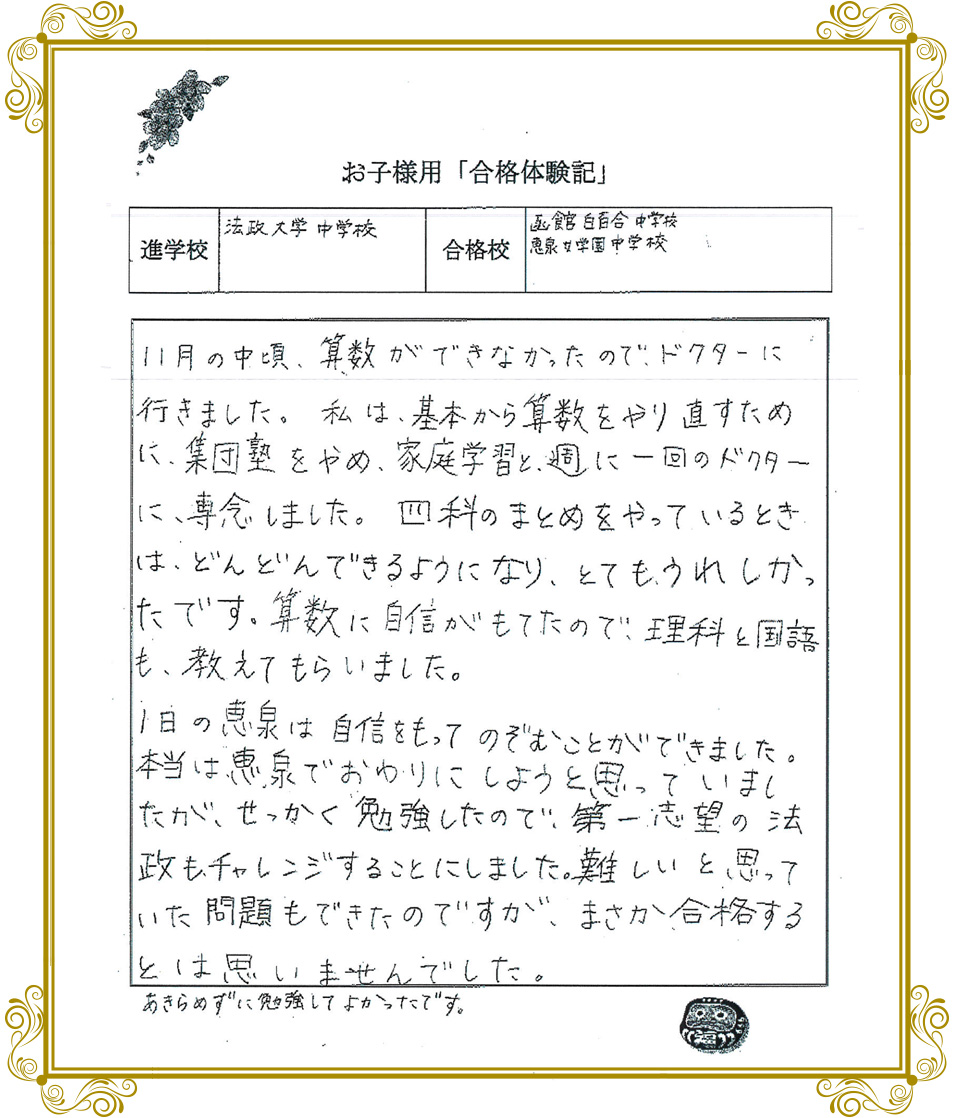 お子様用「合格体験記」
進学校 法政大学中学校 合格校 函館白百合中学校
恵泉女学園中学校
11月の中頃、算数ができなかったので、ドクターに
行きました。私は、基本から算数をやり直すため
に、集団塾をやめ、家庭学習と、週に一回のドクター
に、専念しました。四科のまとめをやっているとき
は、どんどんできるようになり、とてもうれしかっ
たです。算数に自信がもてたので、理科と国語
も、教えてもらいました。
1日の恵泉は自信をもってのぞむことができました。
本当は、恵泉でおわりにしようと思っていまし
たが、せっかく勉強したので、第一志望の法
政もチャレンジすることにしました。難しいと思って
いた問題もできたのですが、まさか合格する
とは思いませんでした。
あきらめずに勉強してよかったです。
福